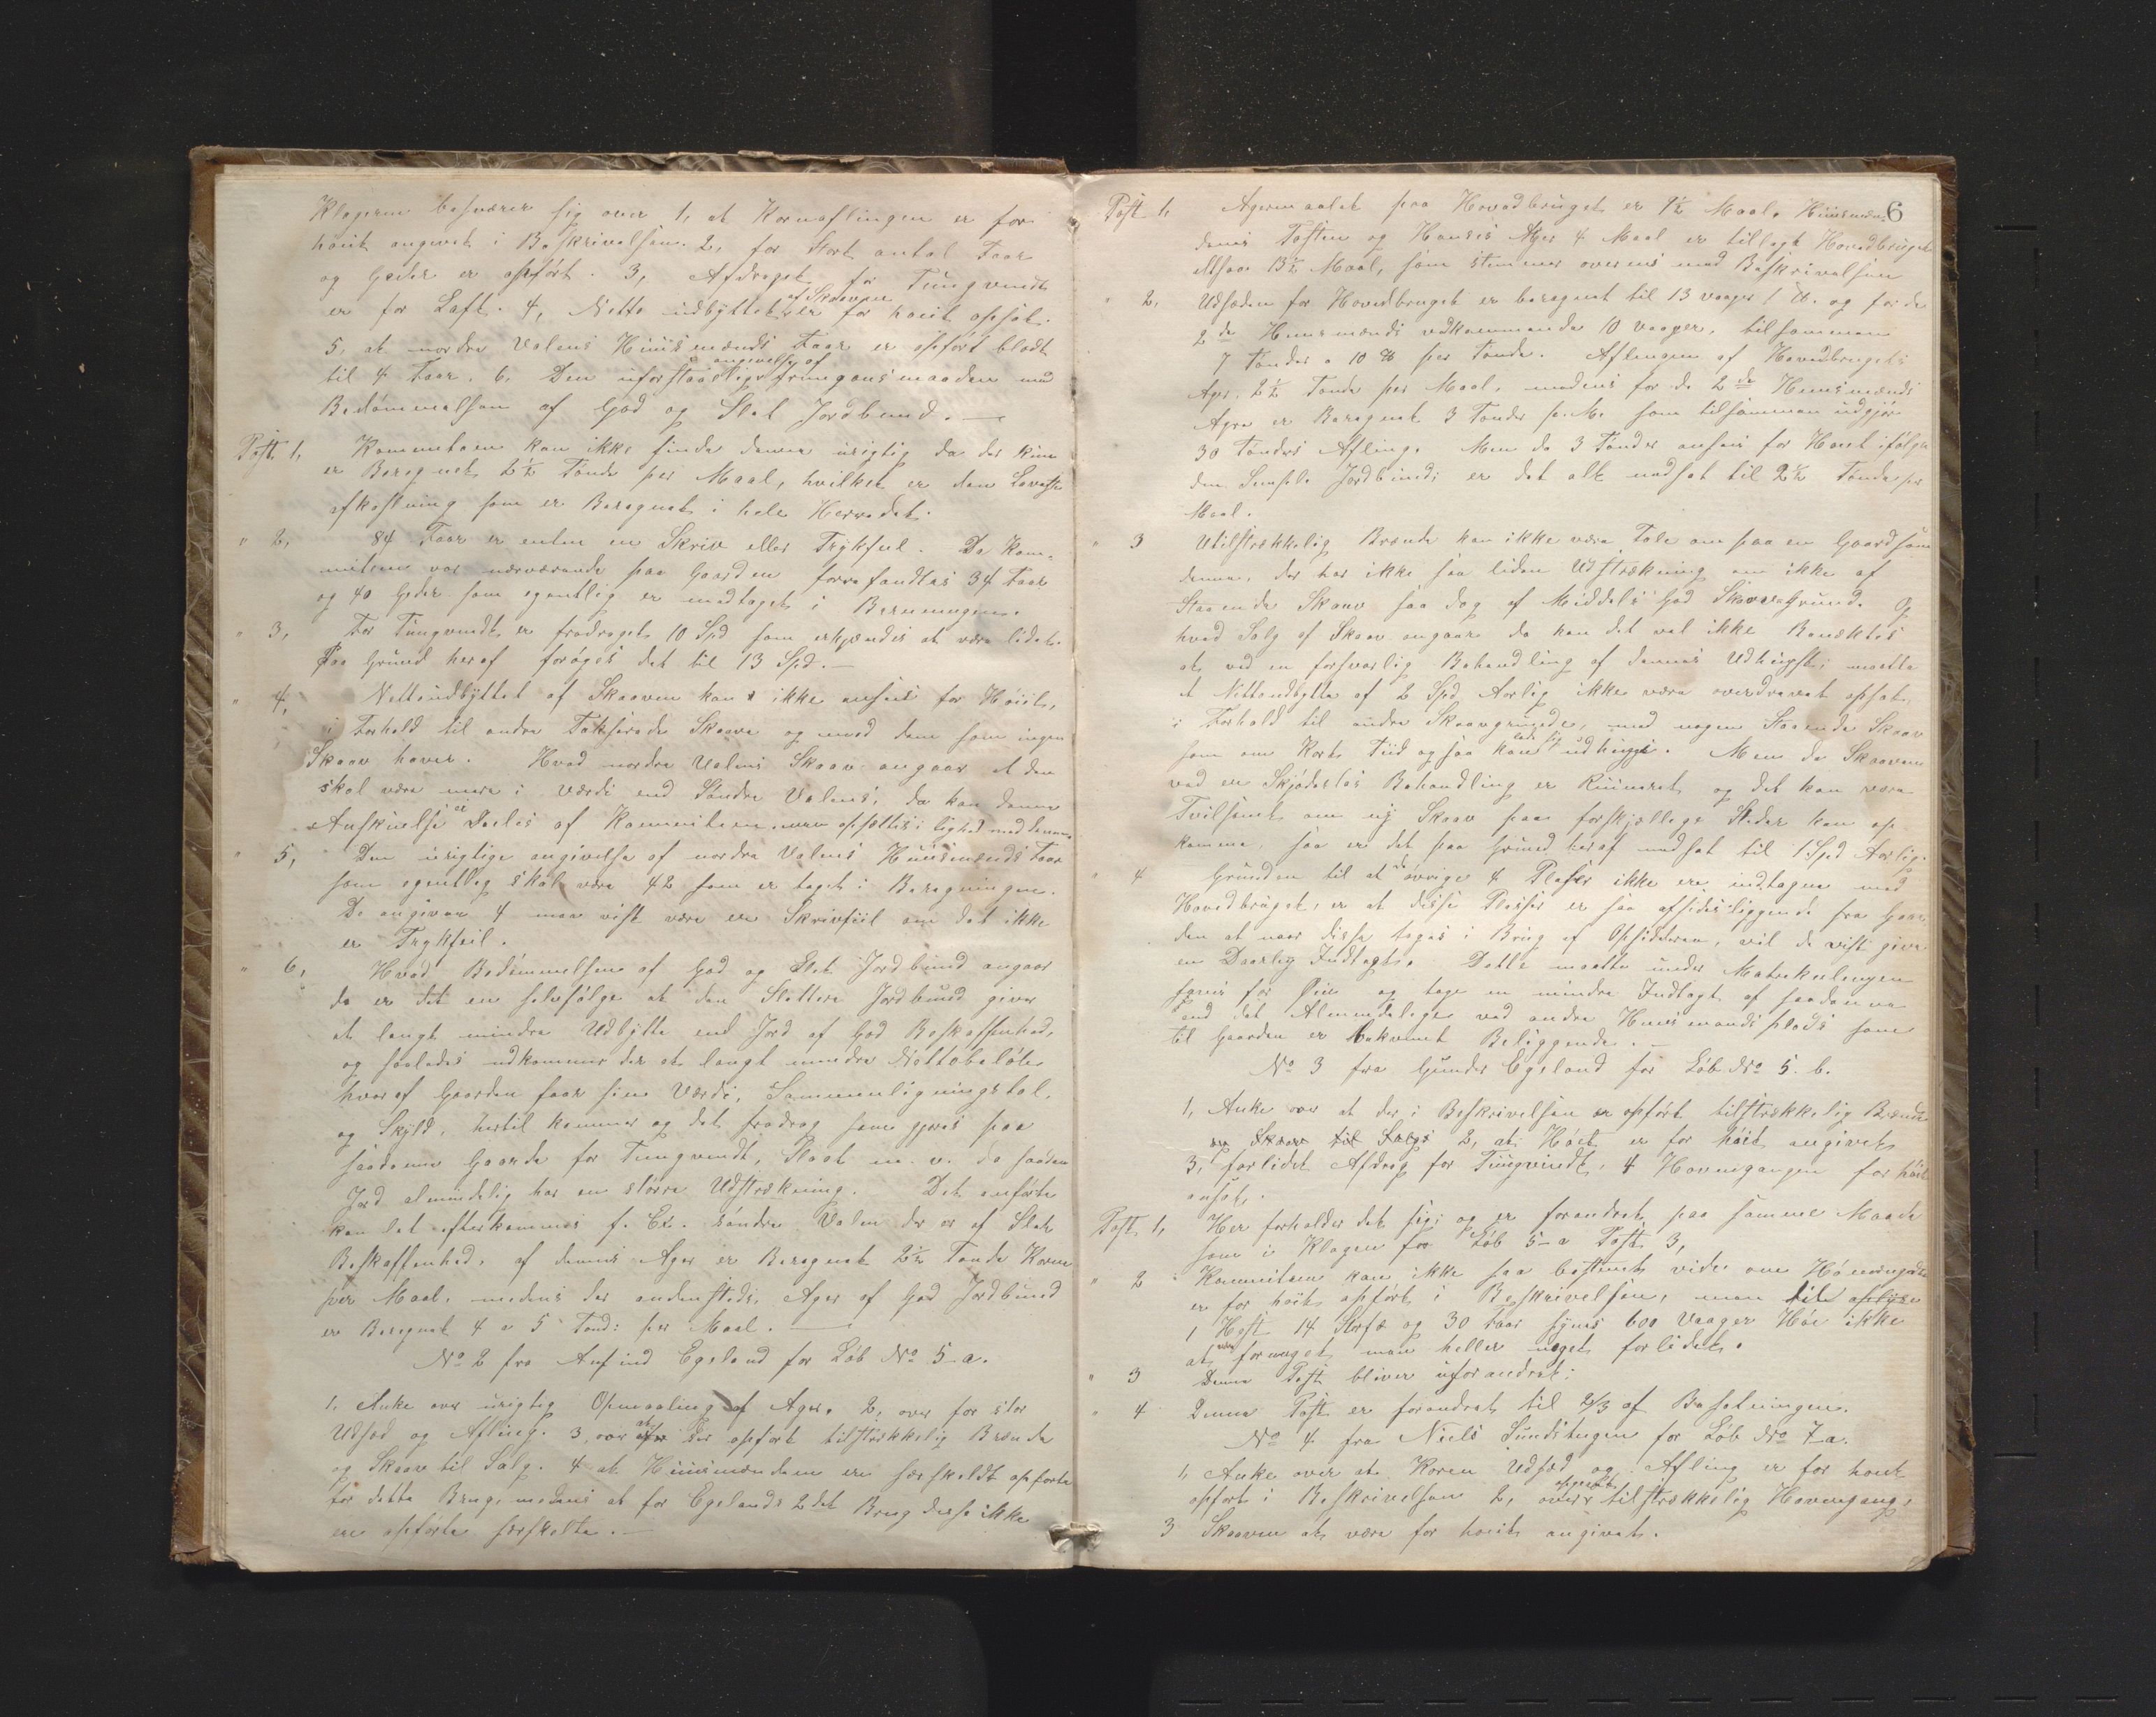 Klagerne besværer sig over 1, at Kornaflingen er for
høit angivet i Beskrivelsen. 2, for Stort antal Faar
og Geder er opført. 3, Afdraget for Tungvindt
er for Laft. 4, Netto udbyttet af Skoven er for høit opsat.
5, at nordre Valens Huusmænds Faar er opført blodt
til 4 Faar. 6, Den uforstaalige angivelse af fremgansmaaden med
Bedømmelsen af God og Slet Jordbund. —
Post 1, Kommiteen kan ikke finde denne urigtig da der kun
er Beregnet 2½ Tønde per Maal, hvilket er den Laveste
afkastning som er Beregnet i hele Herredet.
" 2, 84 Faar er enten en Skriv eller Trykfeil. Da Kom-
miteen var nærværende paa Gaarden forefandtes 34 Faar
og 40 Geder som egentlig er medtaget i Beregningen.
" 3, For Tungvindt er fradraget 10 Spd som erkjendes at være lidet.
Paa Grund heraf forøges det til 13 Spd. —
" 4, Nettoudbyttet af Skoven kan ikke ansees for Høiit,
i Forhold til andre Takserede Skove og med dem som ingen
Skaav haver. Hvad nordre Valens Skaav angaar at den
skal være mere i Værdi end Søndre Valens, da kan denne
Anskuelse ei Deeles af Kommiteen men opsættes i lighed med denne.
" 5, Den urigtige angivelse af nordre Valens Huusmænds Faar
som egentlig skal være 42 som er taget i Beregningen.
De angivne 4 maa vist være en Skrivfeil om det ikke
er Trykfeil.
" 6, Hvad Bedømmelsen af God og Slet Jordbund angaar
da er det en selvfølge at den Slettere Jordbund giver
et langt mindre Udbytte end Jord af God Beskaffenhed,
og saaledes udkommer der et langt mindre Nettobeløb
hvoraf Gaarden faar sin Værdi, Sammenligningstal,
og Skyld, hertil kommer og det fradrag som gjøres paa
saadanne Gaarde for Tungvindt, Slaat m. v. da saadan
Jord almindelig har en større Udstrækning. Det anførte
kan let efterkommes f. Ex. søndre Valen der er af Slet
Beskaffenhed, af dennes Ager er Beregnet 2½ Tønde Korn
per Maal, medens der andensteds, Ager af God Jordbund
er Beregnet 4 a 5 Tønd: per Maal. —
No 2 fra Anfind Egeland for Løb No 5-a.
1, Anke over urigtig Opmaaling af Ager. 2, over for stor
Udsæd og Afling. 3, over at der opført tilstrækkelig Brænde
og Skaav til Salg. 4 at Huusmændene ere særskildt opførte
for dette Brug, medens at for Egelands 2det Brug disse ikke
ere opførte særskilte. —
6
Post 1, Agermaalet paa Hovedbruget er 9½ Maal. Huusmæn-
denes Tosten og Hanses Ager 4 Maal er tillagt Hovedbruget
altsaa 13½ Maal, som stemmer overens med Beskrivelsen
" 2, Udsæden for Hovedbruget er beregnet til 13 vaager 1 ℔. og for de
2de Huusmænds vedkommende 10 vaager, tilsammen
7 Tønder a 10 ℔ per Tønde. Aflingen af Hovedbrugets
Ager, 2½ Tønde per Maal, medens for de 2de Huusmænds
Agre er Beregnet 3 Tønder p. M. som tilsammen udgjør
30 Tønders Afling. Men da 3 Tønder ansees for Høiet ifølge
den Simple Jordbund, er det alt nedsat til 2½ Tønde per
Maal.
" 3 Utilstrækkelig Brænde kan ikke være Tale om paa en Gaard som
denne, der har ikke saa liden Udstrækning om ikke af
Staaende Skaav saa dog af Middels God Skaav Grund. Og
hvad Salg af Skaav angaar da kan det vel ikke Benektes
at ved en forsvarlig Behandling af dennes Udhugst, maatte
et Nettoudbytte af 2 Spd Aarlig ikke være overdrevet opsat
i Forhold til andre Skaavgrunde, med nogen Staaende Skaav
som om Kort Tiid ogsaa kan lade sig udhugge. Men da Skaaven
ved en Skjødesløs Behandling er Ruineret og det kan være
Tvilsomt om ny Skaav paa forskjellige Steder kan op
komme, saa er det paa Grund heraf nedsat til 1 Spd Aarlig.
" 4 Grunden til at de øvrige 4 Plasser ikke ere indtagne med
Hovedbruget, er at disse Plasser er saa afsides liggende fra Gaar
den at naar disse toges i Brug af Opsidderen, vil de vist give
en Daarlig Indtægt. Dette maatte under Matrikulingen
haves for Øie og tage en mindre Indtægt af saadanne
end det Almindelige ved andre Huusmands plads som
til Gaarden er bekvemt Beliggende. —
No 3 fra Gunder Egeland for Løb No 5. b.
1, Anke over at der i Beskrivelsen er opført tilstrækkelig Brænde
og Skaav til Salgs 2, at Høet er for høit angivet
3, forlidet Afdrag for Tungvindt, 4 Havnegangen for høit
ansat.
Post 1, Her forholder det sig og er forandret paa samme Maade
som i Klagen for Løb 5-a Post 3,
" 2 Kommiteen kan ikke saa bestemt vide om Høemengden
er for høit opført i Beskrivelsen, men til
1 Hest 14 Storfæ og 30 Faar synes 600 Vaager Høe ikke
at være formeget men heller noget forlidet.
" 3 Denne Post bliver uforandret.
" 4 Denne Post er forandret til 2/3 af Besætningen.
No 4 fra Niels Sundstugen for Løb No 7-a.
1, Anke over at Koren Udsæd og Afling er for høit
opført i Beskrivelsen 2, over opgivet tilstrækkelig Havnegang,
3 Skaaven at være for høit angivet.